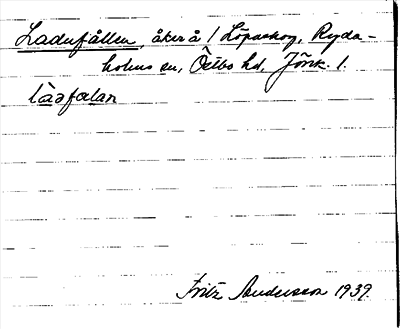 Ladufållen, åker å 1 Löpaskog, Ryda-
holms sn, Östbo hd, Jönk. l.
làǝfælan
Fritz Andersson 1939.